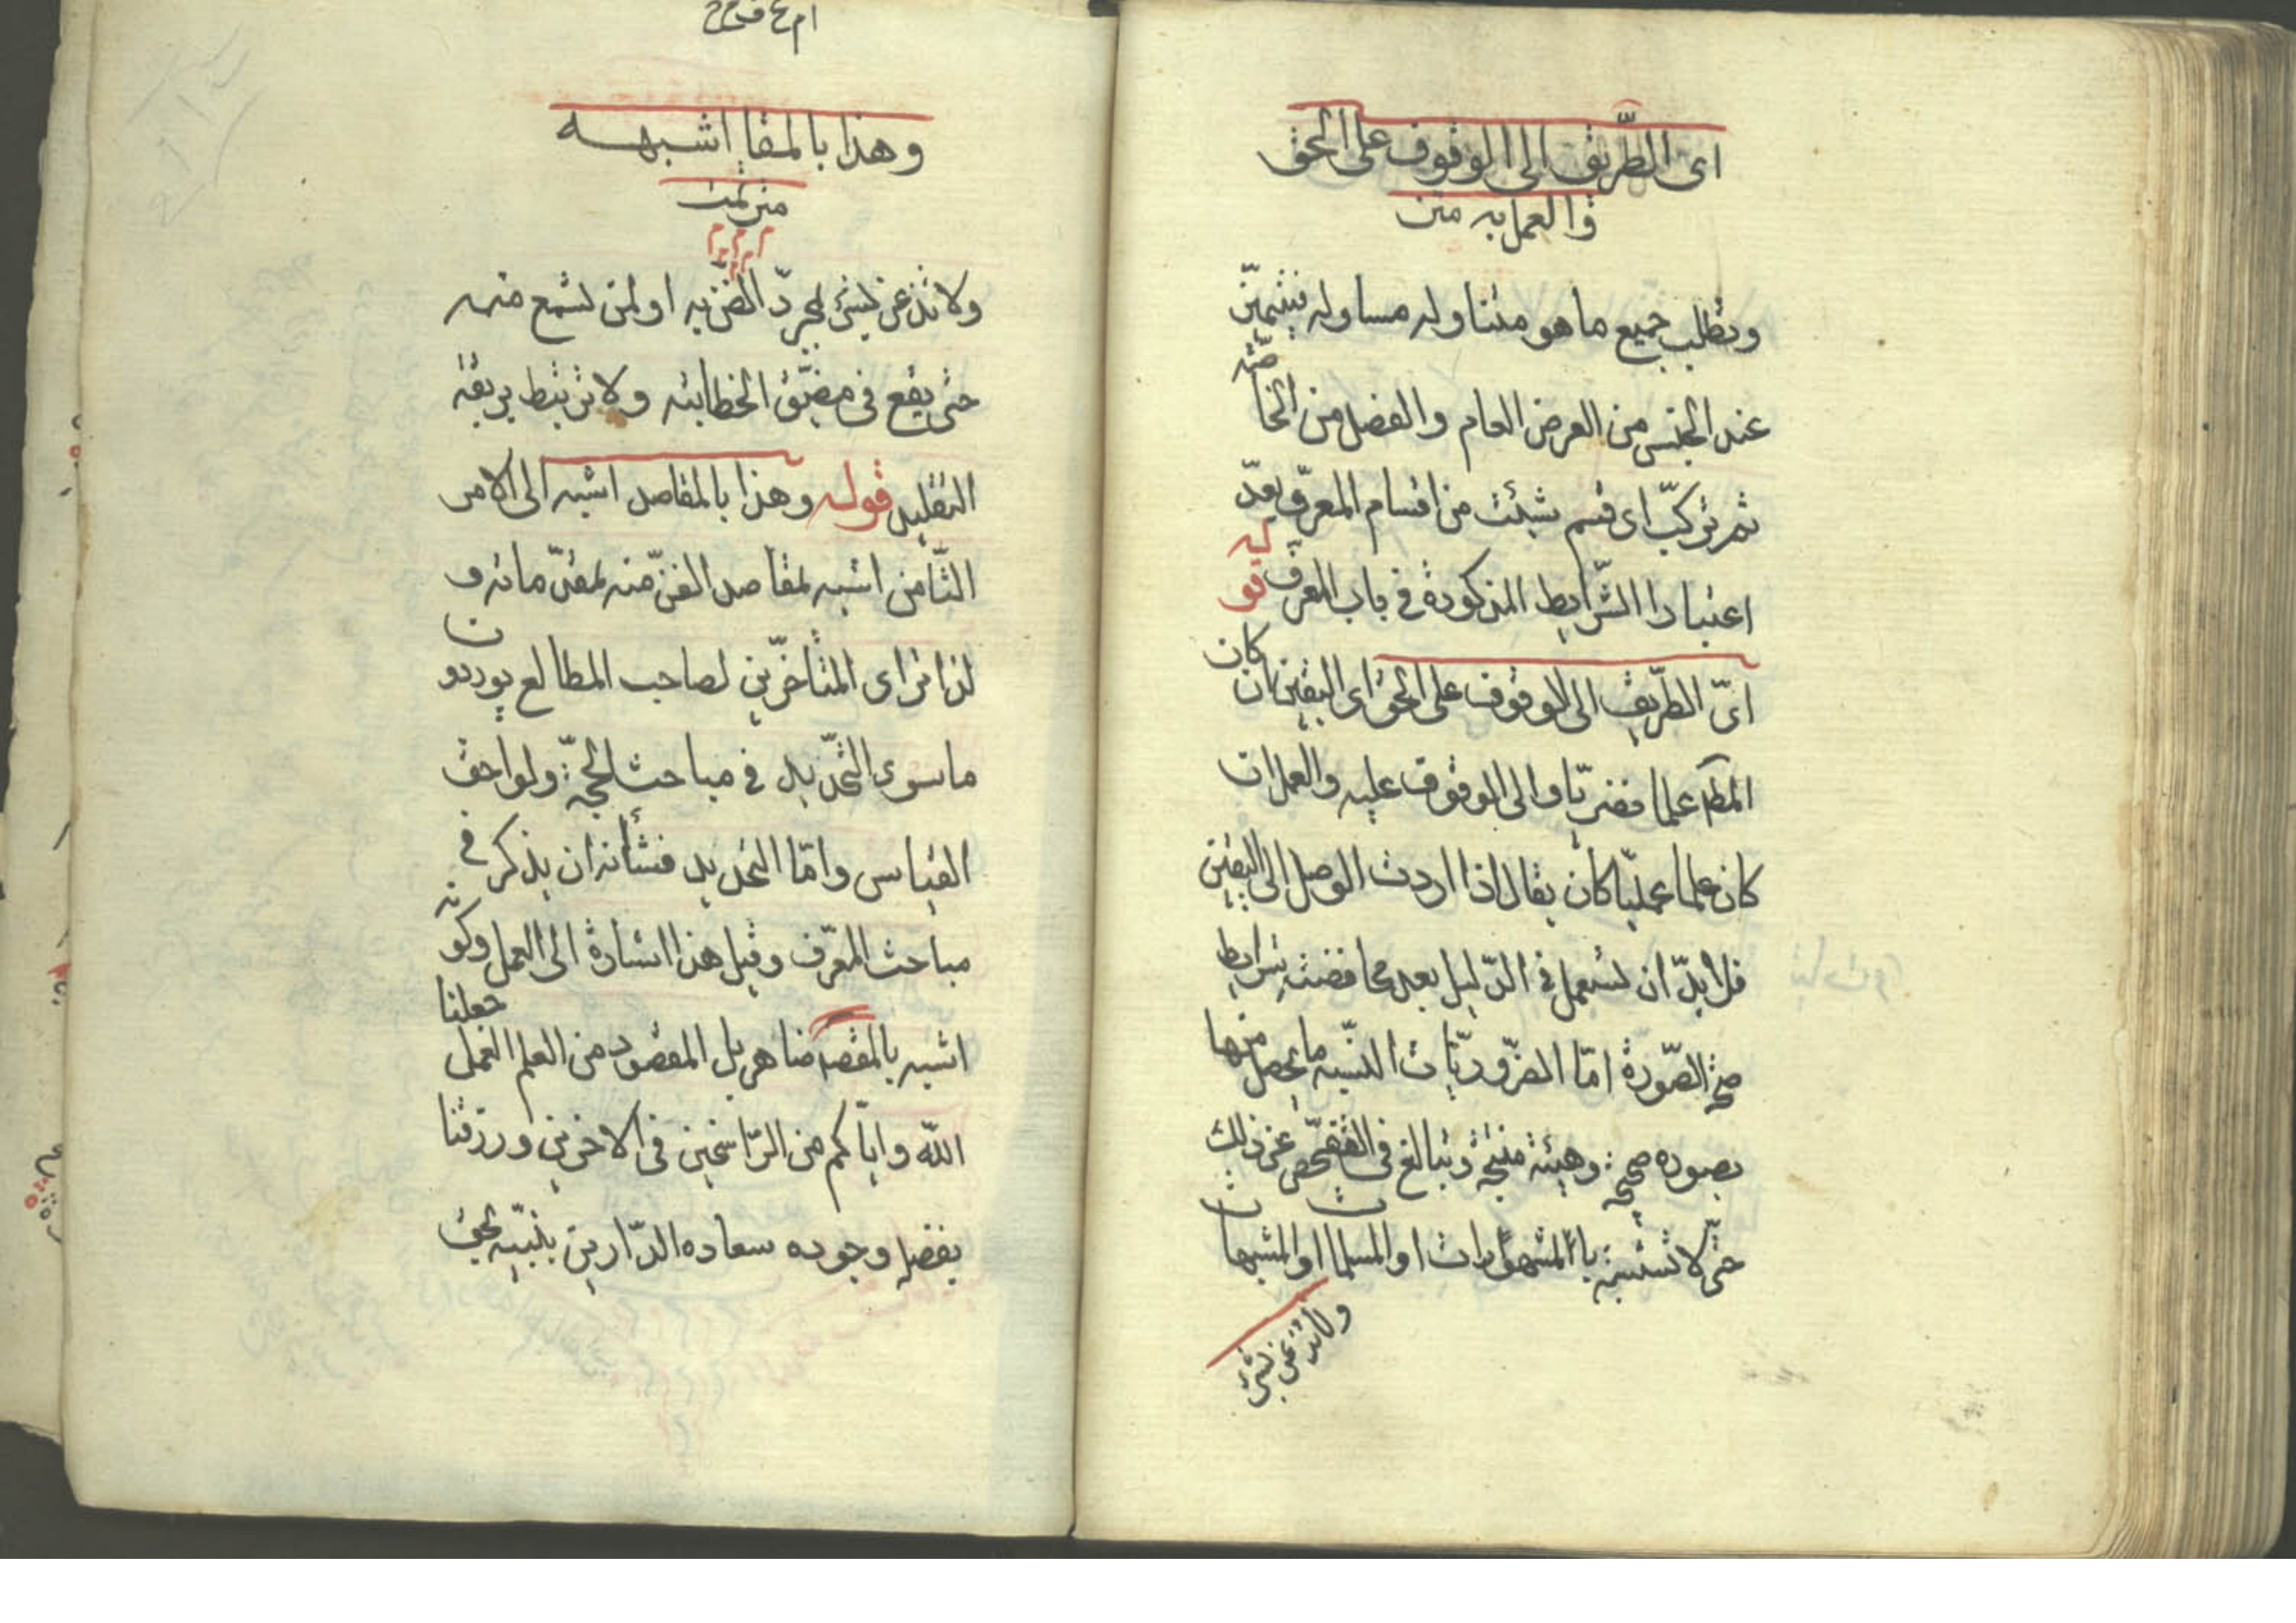 اى الطّريق الى الوقوف على الحق
والعمل به متن
وبطلب جميع ما هو متناوله مساوله فيتميّز
عند الجنس من العرض العام والفصل من الخاصّة
ثم تركّب اى قسم شئت من اقسام المعرّف بعد
اعتبار الشّرايط المذكورة فى باب المعرّف قوله
اىّ الطّريق الى الوقوف على الحق اى اليقين ان كان
المط علما نضريّا والى الوقوف عليه والعمل ان
كان علما عمليّا كان يقال اذا اردت الوصل الى اليقين
فلا بدّ ان تستعمل فى الدّليل بعد محافضت شرايط
صحّة الصّورة امّا الضّروريّات السّته ما يحصل منها
بصوره صحيحة وهيئة منتجة وتبالغ فى التفحّص عن ذلك
حتّى لا تشتبه بالمشهورات او المسلمات او المشبهات
ولا تذعن بشئ
وهذا بالمقا اشبه
متن تمت
ولا تذعن بشئ لمجرّد الضنّ به او لمن تسمع منه
حتى يقع فى مضيق الخطابيه ولا ترتبط بربقة
التقليد قوله وهذا بالمقاصد اشبه الى الامر
الثّامن اشبه لمقاصد الفنّ منه لمقدّماته و
لذا ترى المتاخرّين لصاحب المطالع يوردون
ما سوى التّحديد فى مباحث الحجّة ولواحق
القياس وامّا التحديد فشأنه ان يذكر فى
مباحث المعرّف وقيل هذا اشارة الى العمل وكونه
اشبه بالمقصد ضاهر بل المقصود من العلم العمل جعلنا
اللّه وايّاكم من الرّاسخين فى الاخرين ورزقنا
بفضله وجوده سعاده الدّارين بنبيّه بحق